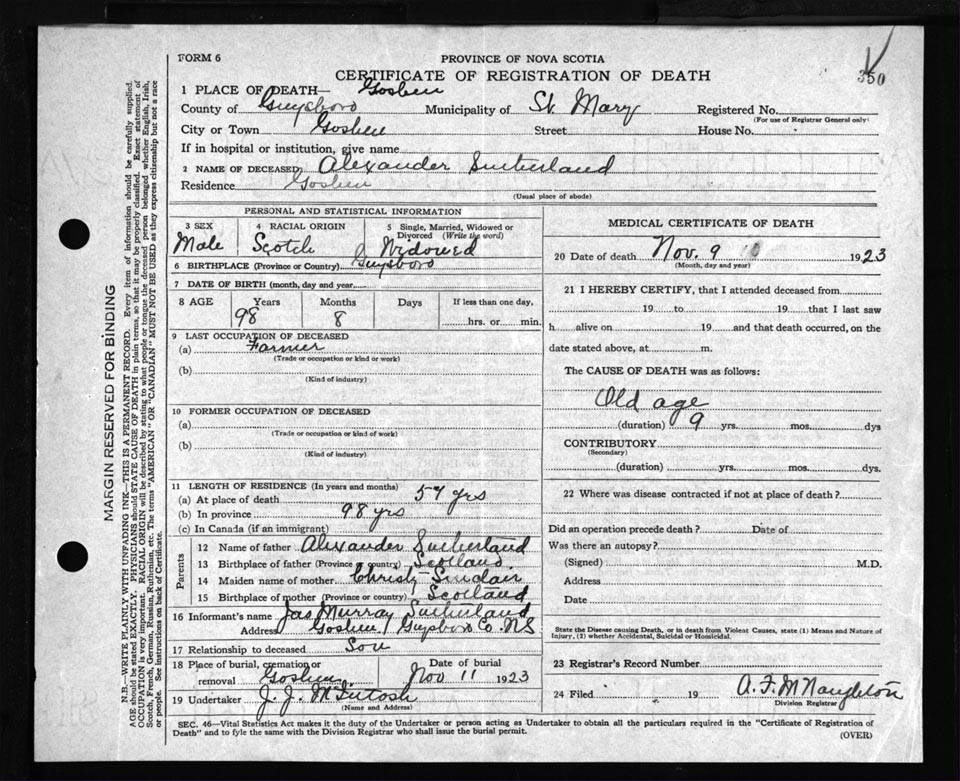 FORM 6
PROVINCE OF NOVA SCOTIA
CERTIFICATE OF REGISTRATION OF DEATH
350
1 PLACE OF DEATH— Goshen
County of Guysboro Municipality of St. Mary Registered No.
(For use of Registrar General only)
City or Town Goshen Street House No.
If in hospital or institution, give name
2 NAME OF DECEASED Alexander Sutherland
Residence Goshen
(Usual place of abode)
PERSONAL AND STATISTICAL INFORMATION
3 SEX 4 RACIAL ORIGIN 5 Single, Married, Widowed or Divorced (Write the word)
Male Scotch Widowed
6 BIRTHPLACE (Province or Country) Guysboro
7 DATE OF BIRTH (month, day and year)
8 AGE Years Months Days If less than one day,
98 8 hrs. or min.
9 LAST OCCUPATION OF DECEASED
(a) Farmer
(Trade or occupation or kind or work)
(b)
(Kind of industry)
10 FORMER OCCUPATION OF DECEASED
(a)
(Trade or occupation or kind of work)
(b)
(Kind of industry)
11 LENGTH OF RESIDENCE (In years and months)
(a) At place of death 57 yrs
(b) In province 98 yrs
(c) In Canada (if an immigrant)
Parents
12 Name of father Alexander Sutherland
13 Birthplace of father (Province or country) Scotland
14 Maiden name of mother Christy Sinclair
15 Birthplace of mother (Province or country) Scotland
16 Informant's name Jas Murray Sutherland
Address Goshen, Guysboro Co. N.S
17 Relationship to deceased Son
18 Place of burial, cremation or removal Goshen Date of burial Nov 11 1923
19 Undertaker J. J. McIntosh
(Name and Address)
MEDICAL CERTIFICATE OF DEATH
20 Date of death Nov. 9 10 1923
(Month, day and year)
21 I HEREBY CERTIFY, that I attended deceased from
19 to 19 that I last saw
h alive on 19 and that death occurred, on the
date stated above, at m.
The CAUSE OF DEATH was as follows:
Old age
(duration) 9 yrs. mos. dys
CONTRIBUTORY
(Secondary)
(duration) yrs. mos. dys.
22 Where was disease contracted if not at place of death?
Did an operation precede death? Date of
Was there an autopsy?
(Signed) M.D.
Address
Date
State the Disease causing Death, or in death from Violent Causes, state (1) Means and Nature of
Injury, (2) whether Accidental, Suicidal or Homicidal.
23 Registrar's Record Number
24 Filed 19 A. F. McNaughton
Division Registrar
SEC. 46—Vital Statistics Act makes it the duty of the Undertaker or person acting as Undertaker to obtain all the particulars required in the "Certificate of Registration of
Death" and to fyle the same with the Division Registrar who shall issue the burial permit.
(OVER)
MARGIN RESERVED FOR BINDING
N.B.—WRITE PLAINLY WITH UNFADING INK—THIS IS A PERMANENT RECORD. Every item of information should be carefully supplied.
AGE should be stated EXACTLY. PHYSICIANS should STATE CAUSE OF DEATH in plain terms, so that it may be properly classified. Exact statement of
OCCUPATION is very important. RACIAL ORIGIN will be described by stating to what people or tongue the deceased person belonged whether English, Irish,
Scotch, French, German, Russian, Ruthenian, etc. The terms "AMERICAN" OR "CANADIAN" MUST NOT BE USED as they express citizenship but not a race
or people. See instructions on back of Certificate.